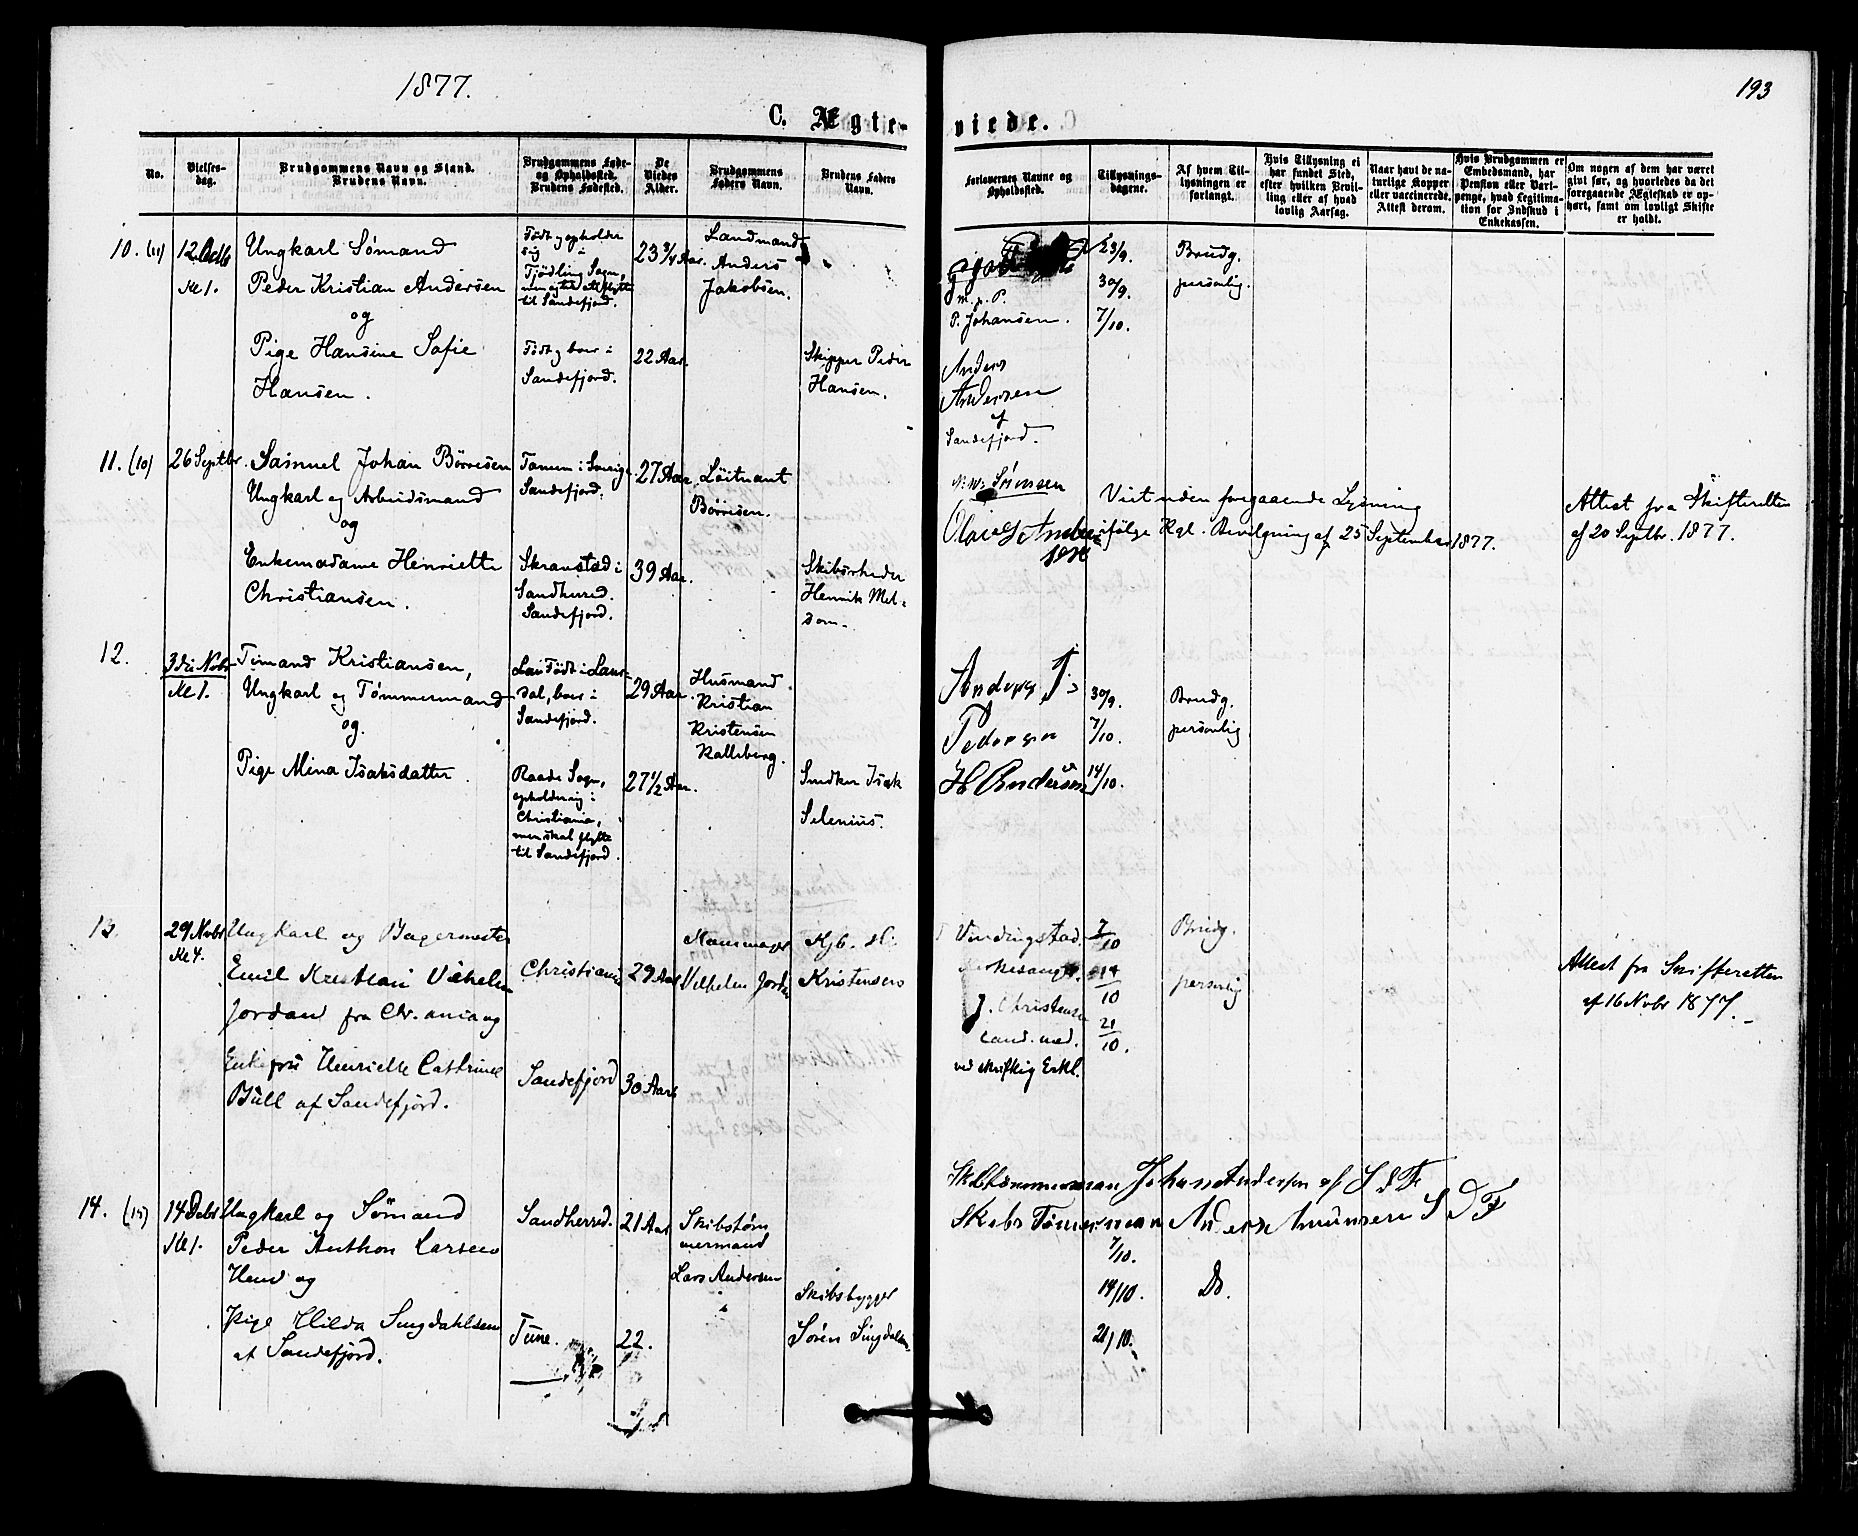 1877.
193
C. Ægte-
viede.
No.
Vielses-
dag.
Brudgommens Navn og Stand.
Brudens Navn.
Brudgommens Føde-
og Opholdssted.
Brudens Fødested.
De
Viedes
Alder.
Brudgommens
Faders Navn.
Brudens Faders
Navn.
Forlovernes Navne og
Opholdssted.
Tillysnings-
dagene.
Af hvem Til-
lysningen er
forlangt.
Hvis Tillysning ei
har fundet Sted,
efter hvilken Bevil-
ling eller af hvad
lovlig Aarsag.
Naar havt de na-
turlige Kopper
eller vaccinerede.
Attest derom.
Hvis Brudgommen er
Embedsmand, har
Pension eller Vart-
penge, hvad Legitima-
tion for Indskud i
Enkekassen.
Om nogen af dem har været
givt før, og hvorledes da det
foregaaende Ægteskab er op-
hørt, samt om lovligt Skifte
er holdt.
10. (11)
12. Octb
Kl 1.
Ungkarl Sømand
Peder Kristian Andersen
og
Pige Hansine Sofie
Hansen.
Født og opholder
sig i
Tjødling Sogn,
til Sandefjord.
Født og boer i
Sandefjord.
23 3/4 Aar.
22 Aar.
Landmand
Anders
Jakobsen.
Skipper Peder
Hansen.
m. p. P.
P. Johansen.
Anders
Andersen
af
Sandefjord.
23/9.
30/9.
7/10.
Brudg.
personlig.
11. (10)
26 Septbr.
Samuel Johan Børresen
Ungkarl og Arbeidsmand
og
Enkemadame Henriette
Christiansen.
Tanum i Sverig.
Sandefjord.
Skranstad i
Sandherred.
Sandefjord.
27 Aar.
39 Aar.
Løitnant
Børresen.
Skibsrheder
Henrik Mel-
som.
Sørensen
Viet uden foregaaende Lysning
ifølge Kgl. Bevilgning af 25 September 1877.
Attest fra Skifteretten
af 20 Septbr. 1877.
12.
3die Novbr
Kl 1.
Timand Kristiansen,
Ungkarl og Tømmermand
og
Pige Mina Isaksdatter.
Født i Laur-
dal, boer i
Sandefjord.
Raade Sogn,
opholder sig i
Christiania,
men skal flytte
til Sandefjord.
29 Aar.
27 1/2 Aar.
Husmand
Kristian
Kristensen
Kalleberg.
Snedker Isak
Selenius.
Anders
Pedersen
H Andersen
30/9.
7/10.
14/10.
Brudg.
personlig
13.
29 Novbr
Kl 4.
Ungkarl og Bagermester
Emil Kristian Vilhelm
Jordan fra Chr.ania og
Enkefru Henriette Cathrine
Bull af Sandefjord.
Christiania
Sandefjord
29 Aar
30 Aar
Vilhelm Jordan
Kjb.
Kristensen
Vindingstad.
J. Christensen
cand. med.
ved skriftlig Erkl.
7/10
14/10
21/10.
Brudg.
personlig
Attest fra Skifteretten
af 16 Novbr 1877.
14. (15)
14 Decbr
Kl 1.
Ungkarl og Sømand
Peder Anthon Larsen
og
Pige Hilda Singdahlsen
af Sandefjord.
Sandherred.
Tune.
21 Aar
22.
Skibstøm
mermand
Lars Andersen
Skibsbygger
Søren Singdalsen
Skibstømmerman Johan Anderson af S d F
Skibs Tømmerman Anders Amunsen S D F
7/10.
14/10.
21/10.
Do.